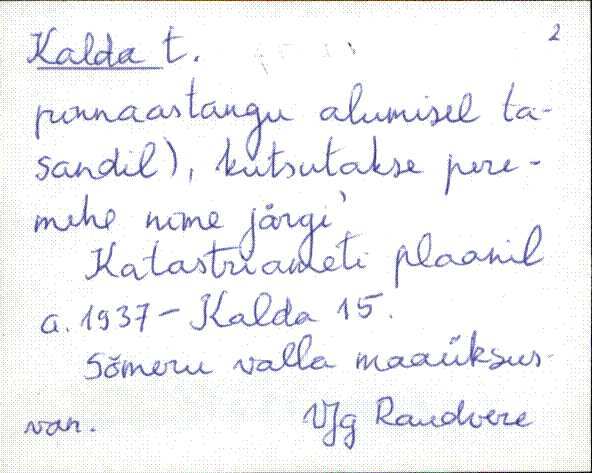 2
Kalda t.
pinnaastangu alumisel ta-
sandil), kutsutakse pere-
mehe nime järgi'
Katastriameti plaanil
a. 1937 - Kalda 15.
Sõmeru valla maaüksus-
van. VJg Raudvere